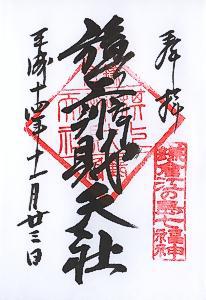 奉拝
鎌倉江の島七福神
旗上辨財天社
平成十四年十一月廿三日